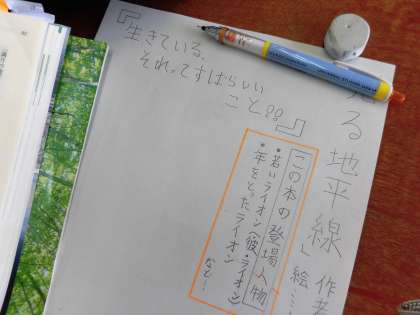 る地平線
」絵……
作者
『生きている、
それってすばらしい
こと!!
』
この本の登場人物
*若いライオン(彼)・ライオン
*年をとったライオン
など…